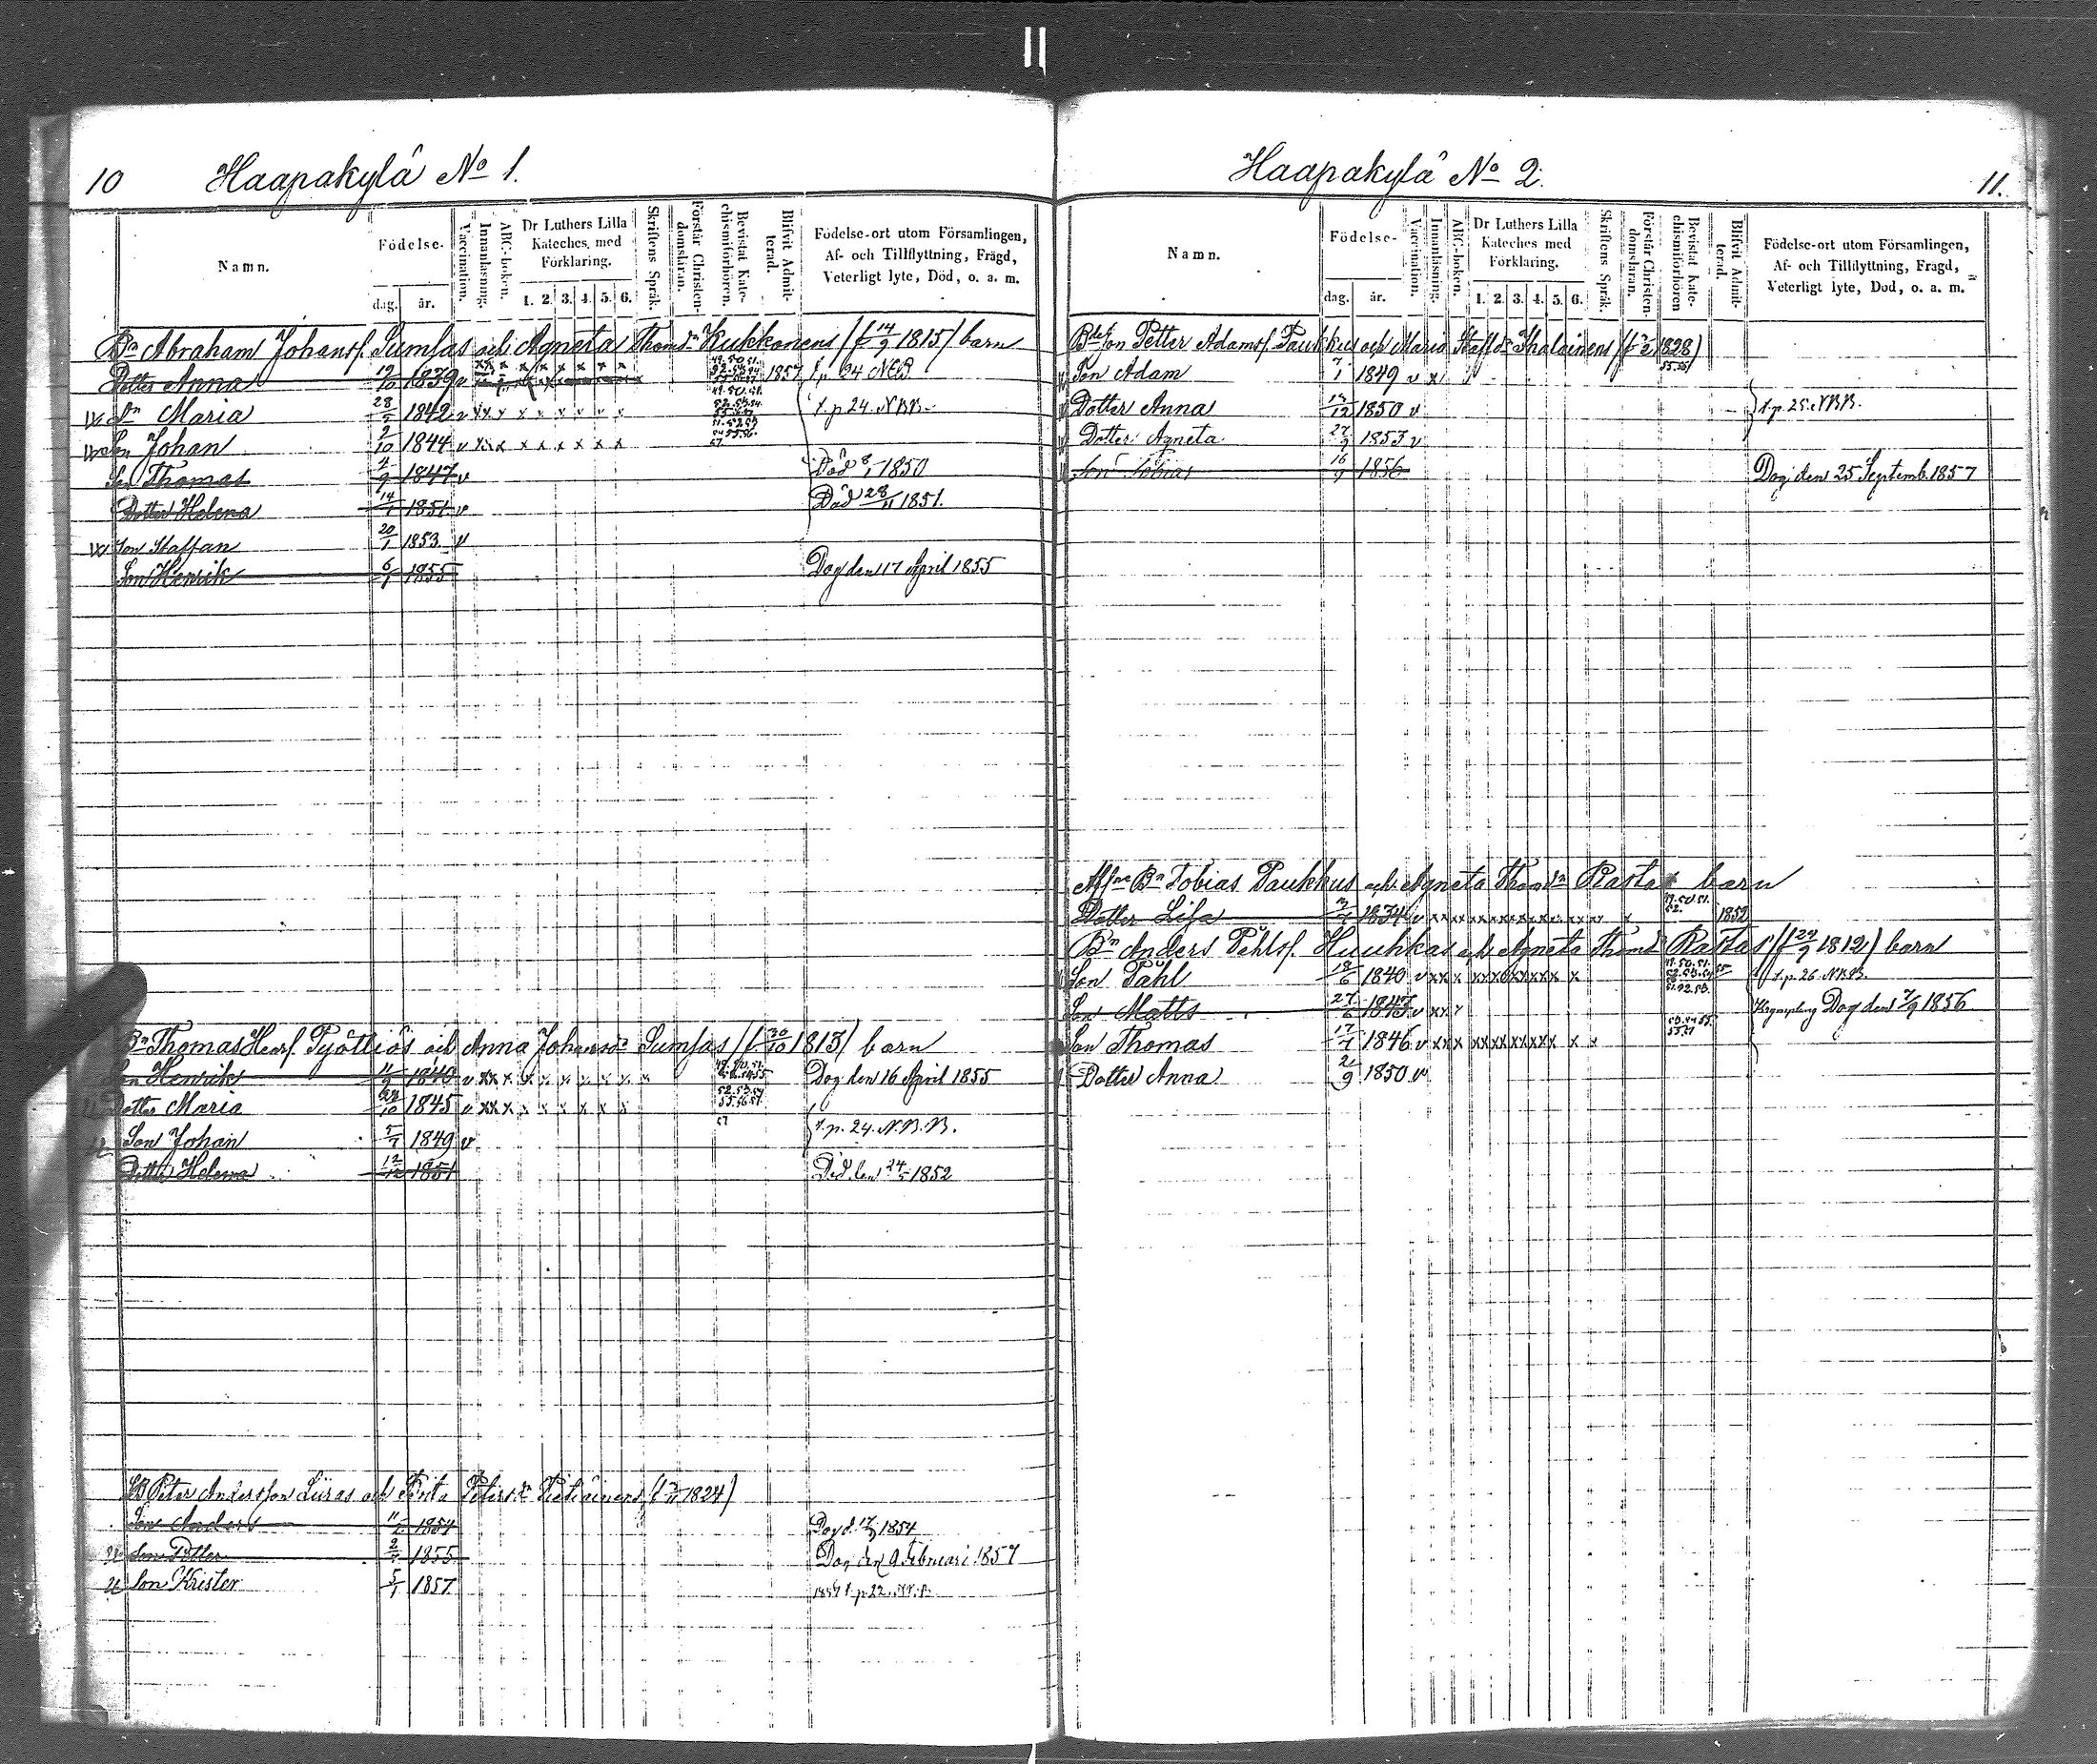 10 Haapakylä No 1.
Namn. Födelse- dag. år. Vaccination. Innanläsning. ABC-boken. Dr Luthers Lilla Kateches. med Förklaring. 1. 2. 3. 4. 5. 6. Skriftens Språk. Förstår Christendomsläran. Bevistat Katechismiförhören. Blifvit Admitterad. Födelse-ort utom Församlingen, Af- och Tillflyttning, Frägd, Veterligt lyte, Död, o. a. m.
Bn Abraham Johansf. Sumsas och Agneta Thomdr Kukkonens (f 14/9 1815) barn
Dotter Anna 12/10 1839 v 1857 f. p 24 NBB
Dr Maria 28/5 1842 v xx x x x x v v x f. p. 24. NBB.
Son Johan 2/10 1844 v xx x x x x x x x 57
Son Thomas 4/9 1847 v Död 8/1 1850
Dotter Helena 14/1 1851 v Död 28/11 1851.
Son Staffan 20/1 1853 v
Son Henrik 6/1 1855 Dog den 17 April 1855
Bn Thomas Henrf Pyöttiäs och Anna Johansdr Sumsas (f 30/10 1813) barn
Son Henrik 11/9 1840 v xx x Dog den 16 April 1855
Dotter Maria 22/10 1845 v xx x x x x x x x
Son Johan 5/1 1849 v f. p. 24. N.B.B.
Dotter Helena 12/12 1851 Död den 24/5 1852
Peter Andersson Liiras och (1824)
Son Anders 1854 Dog d. 1854
Son Petter 1855 Dog den 9 Februari 1857
Son Krister 5/1 1857 1857 f. p 22.
Haapakylä No 2. 11.
Namn. Födelse- dag. år. Vaccination. Innanläsning. ABC-boken. Dr Luthers Lilla Kateches med Förklaring. 1. 2. 3. 4. 5. 6. Skriftens Språk. Förstår Christendomsläran. Bevistat Katechismiförhören Blifvit Admitterad. Födelse-ort utom Församlingen, Af- och Tillflyttning, Frägd, Veterligt lyte, Död, o. a. m.
Son Petter Adamsf Paukkus och Maria Staffdr Ihalainens (f 1828)
Son Adam 7/1 1849 v x
Dotter Anna 13/12 1850 v f. p. 25. NBB.
Dotter Agneta 27/9 1853 v
Son Tobias 16/9 1856 Dog den 25 Septemb. 1857
Afne Bn Tobias Paukkus och Agneta Thomdr Rastas barn
Dotter Lisa 3/7 1834 v 1852
Bn Anders Pehlsf. Huuhkas och Agneta Thomdr Rastas (f 29/9 1812) barn
Son Påhl 18/6 1840 v xx x f. p. 26. NBB.
Son Matts 27/6 1843 v xx x Dog den 7/9 1856
Son Thomas 17/1 1846 v xx x
Dotter Anna 2/9 1850 v